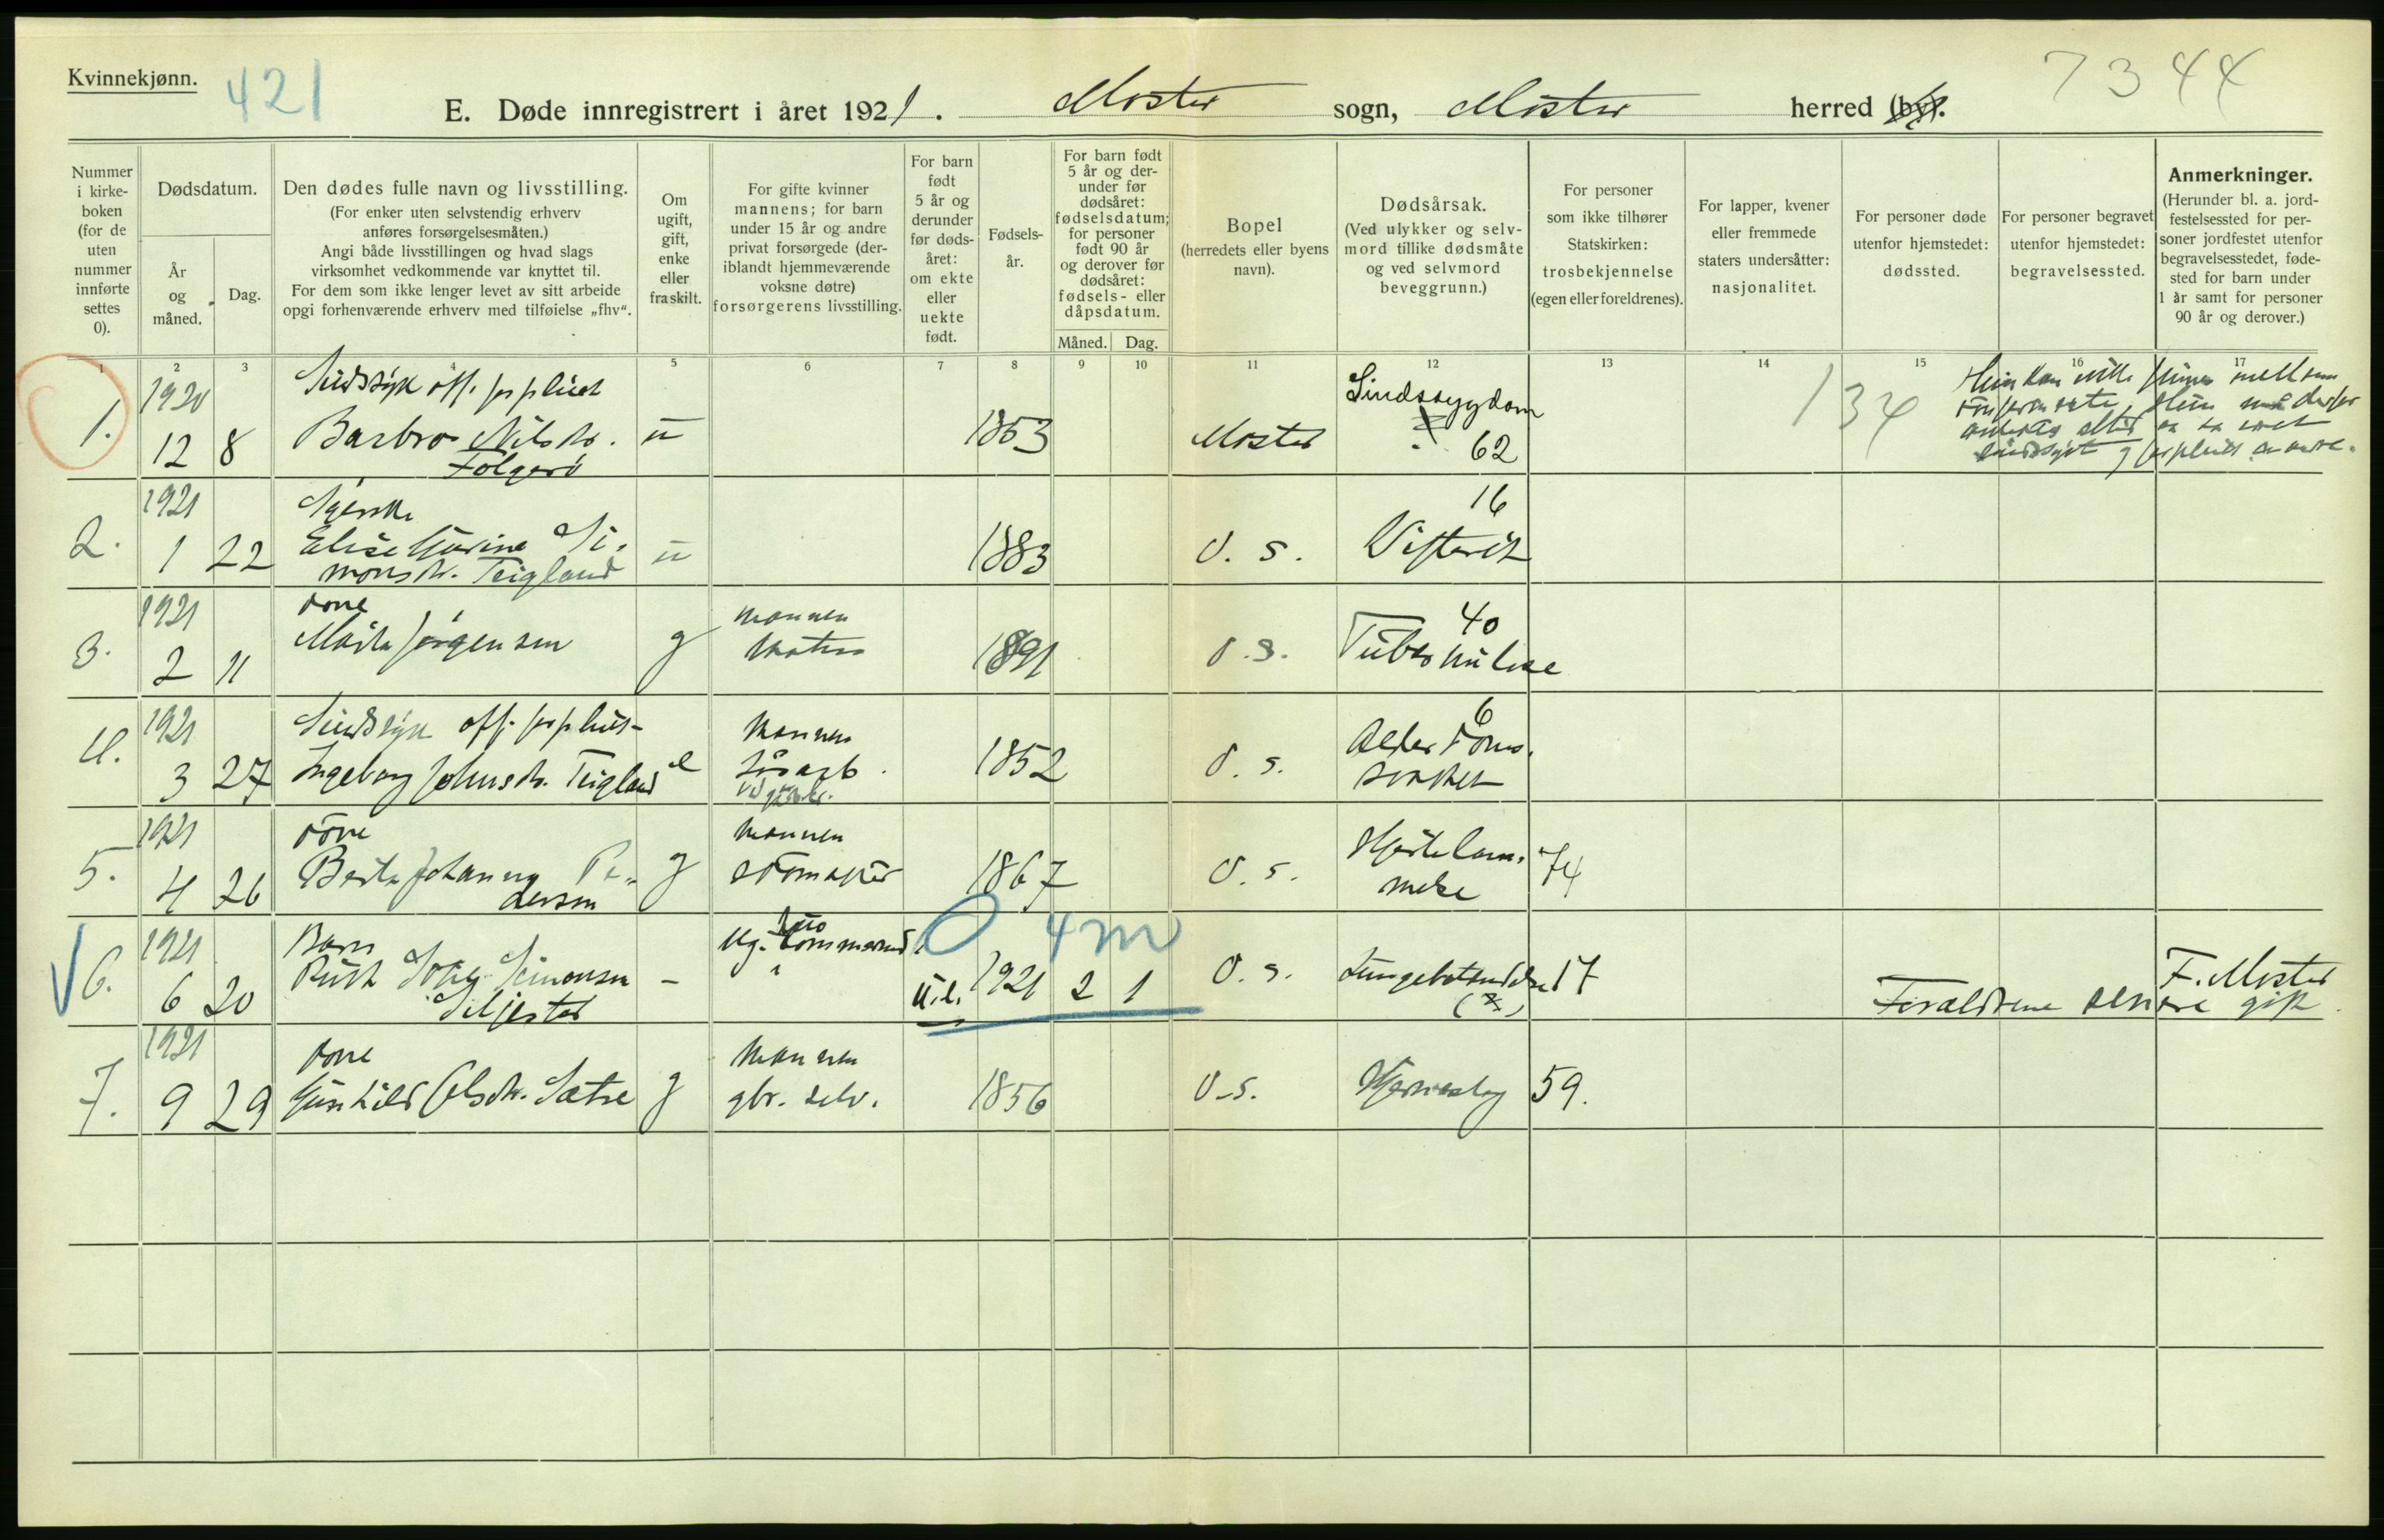 Kvinnekjønn.
421
7344
E. Døde innregistrert i året 1921. Moster sogn, Moster herred (by).
Nummer i kirke-boken (for de uten nummer innførte settes 0).
Dødsdatum.
År og måned.
Dag.
Den dødes fulle navn og livsstilling.
(For enker uten selvstendig erhverv anføres forsørgelsesmåten.)
Angi både livsstillingen og hvad slags virksomhet vedkommende var knyttet til.
For dem som ikke lenger levet av sitt arbeide opgi forhenværende erhverv med tilføielse „fhv“.
Om ugift, gift, enke eller fraskilt.
For gifte kvinner mannens; for barn under 15 år og andre privat forsørgede (der-iblandt hjemmeværende voksne døtre) forsørgerens livsstilling.
For barn født 5 år og derunder før døds-året: om ekte eller uekte født.
Fødsels-år.
For barn født 5 år og der-under før dødsåret: fødselsdatum; for personer født 90 år og derover før dødsåret: fødsels- eller dåpsdatum.
Måned.
Dag.
Bopel
(herredets eller byens navn).
Dødsårsak.
(Ved ulykker og selv-mord tillike dødsmåte og ved selvmord beveggrunn.)
For personer som ikke tilhører Statskirken: trosbekjennelse (egen eller foreldrenes).
For lapper, kvener eller fremmede staters undersåtter: nasjonalitet.
For personer døde utenfor hjemstedet: dødssted.
For personer begravet utenfor hjemstedet: begravelsessted.
Anmerkninger.
(Herunder bl. a. jord-festelsessted for per-soner jordfestet utenfor begravelsesstedet, føde-sted for barn under 1 år samt for personer 90 år og derover.)
1 2 3 4 5 6 7 8 9 10 11 12 13 14 15 16 17
1. 1920 12 8 Sindssyk off. forpleiet
Barbro Nilsdtr. Folgerø u 1853 Moster Sindssygdom 62 134
2. 1921 1 22 Syerske
Elise Gurine Si-
monsdr. Teigland u 1883 d. s. 16
3. 1921 2 11 kone
Marta Jørgensen g mannen 1891 d. s. 40
Tuberkulose
4. 1921 3 27 Sindssyk off. forpleiet
Ingeborg Johnsdr. Teigland e mannen
løsarb. 1852 d. s. 6
Alderdoms.
svakhet
5. 1921 4 26 kone
Berta Johanna Pe-
dersen g mannen
skomaker 1867 d. s. Hjertelam-
melse 74
6. 1921 6 20 Barn
Ruth Sofie Simonsen
Siljestøl - u.e. 0 4 m
1921 2 1 d. s. Lungebetendelse 17
F. Moster
Forældrene senere gift
7. 1921 9 29 kone
Gunhild Olsdtr. Sætre g mannen
gbr. selv. 1856 d. s. Hjerneslag 59.